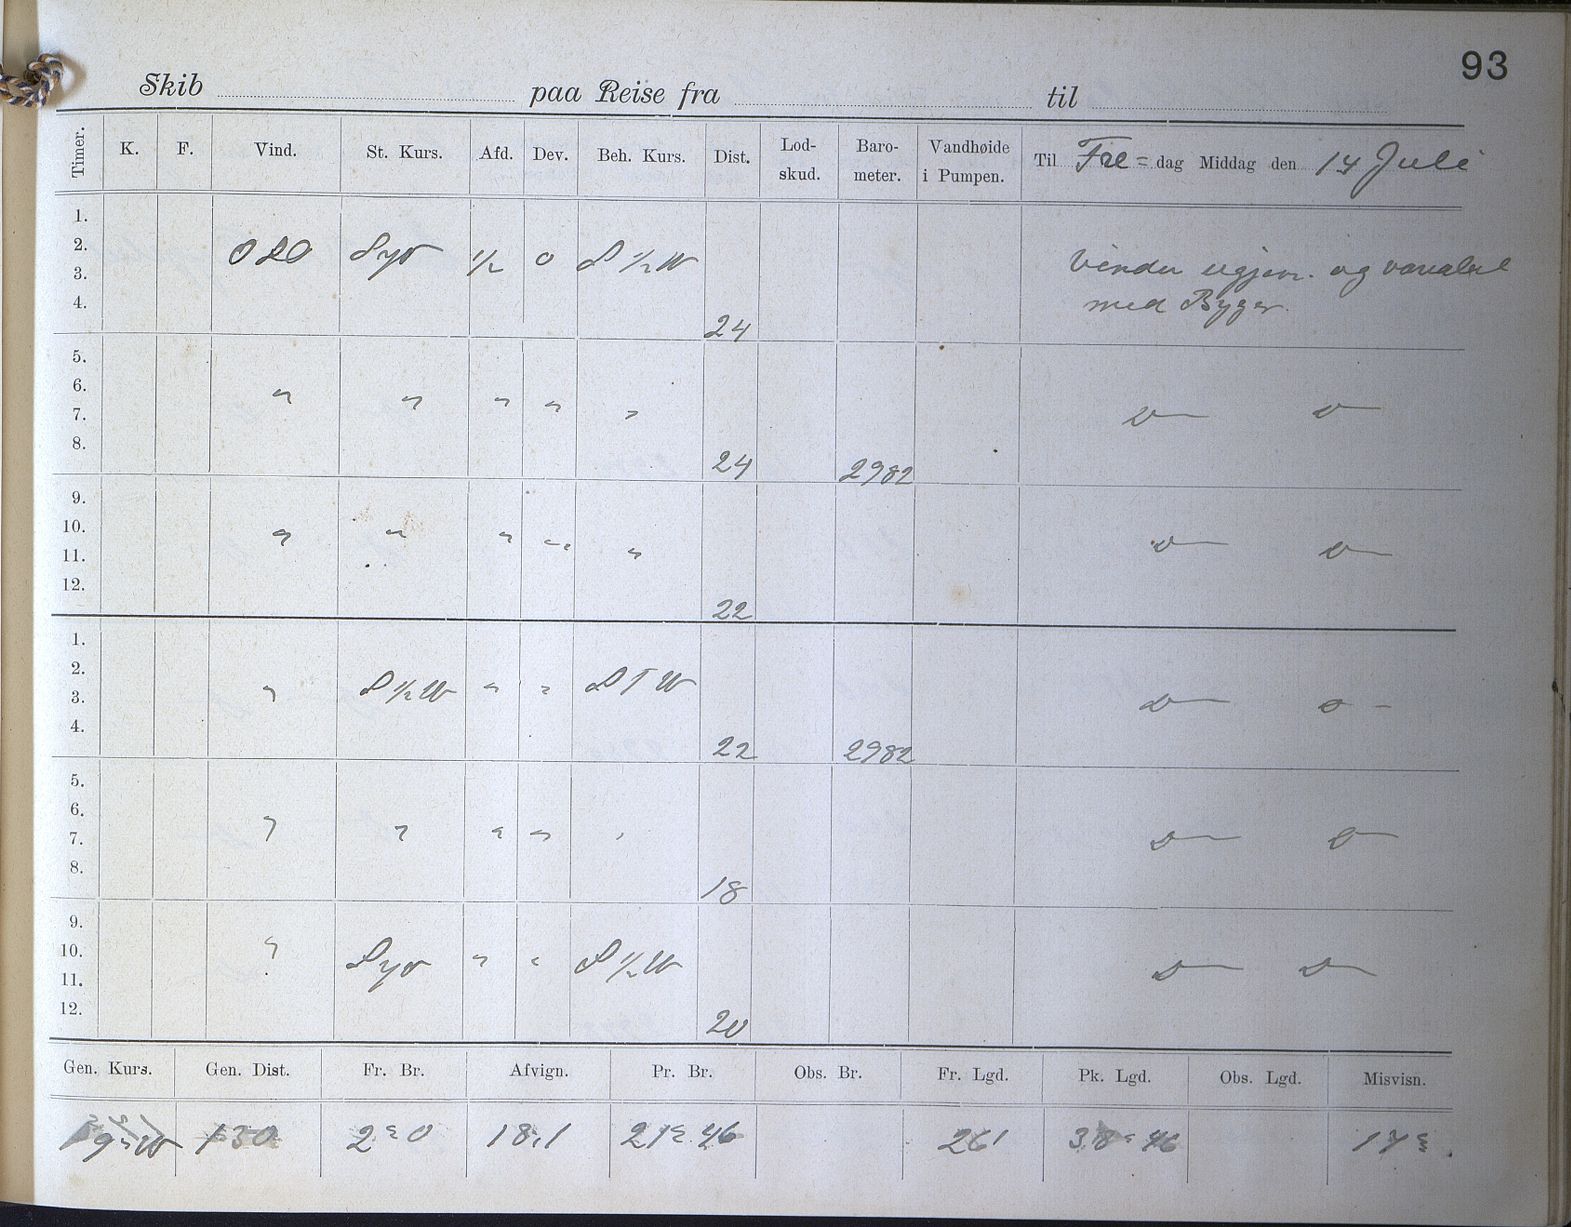 93
Skib paa Reise fra til
Timer. K. F. Vind. St. Kurs. Afd. Dev. Beh. Kurs. Dist. Lod-skud. Baro-meter. Vandhøide i Pumpen. Til Fre= dag Middag den 14 Juli
1.
2. OSO Syv ½ 0 S ½ W Vinden ugjevn. og variabel
3.
4. 24 med Byger.
5.
6. " " " " "
7. D— D—
8. 24 2982
9.
10. " " " " "
11. D— D—
12. 22
1.
2. " S ½ W " " S T W
3. D— D—
4. 22 2982
5.
6. " " " " "
7. D— D—
8. 18
9.
10. " Syv " " S ½ W
11. D— D—
12. 20
Gen. Kurs. Gen. Dist. Fr. Br. Afvign. Pr. Br. Obs. Br. Fr. Lgd. Pk. Lgd. Obs. Lgd. Misvisn.
130 2° 0 18,1 21° 46 261 38° 46 17°